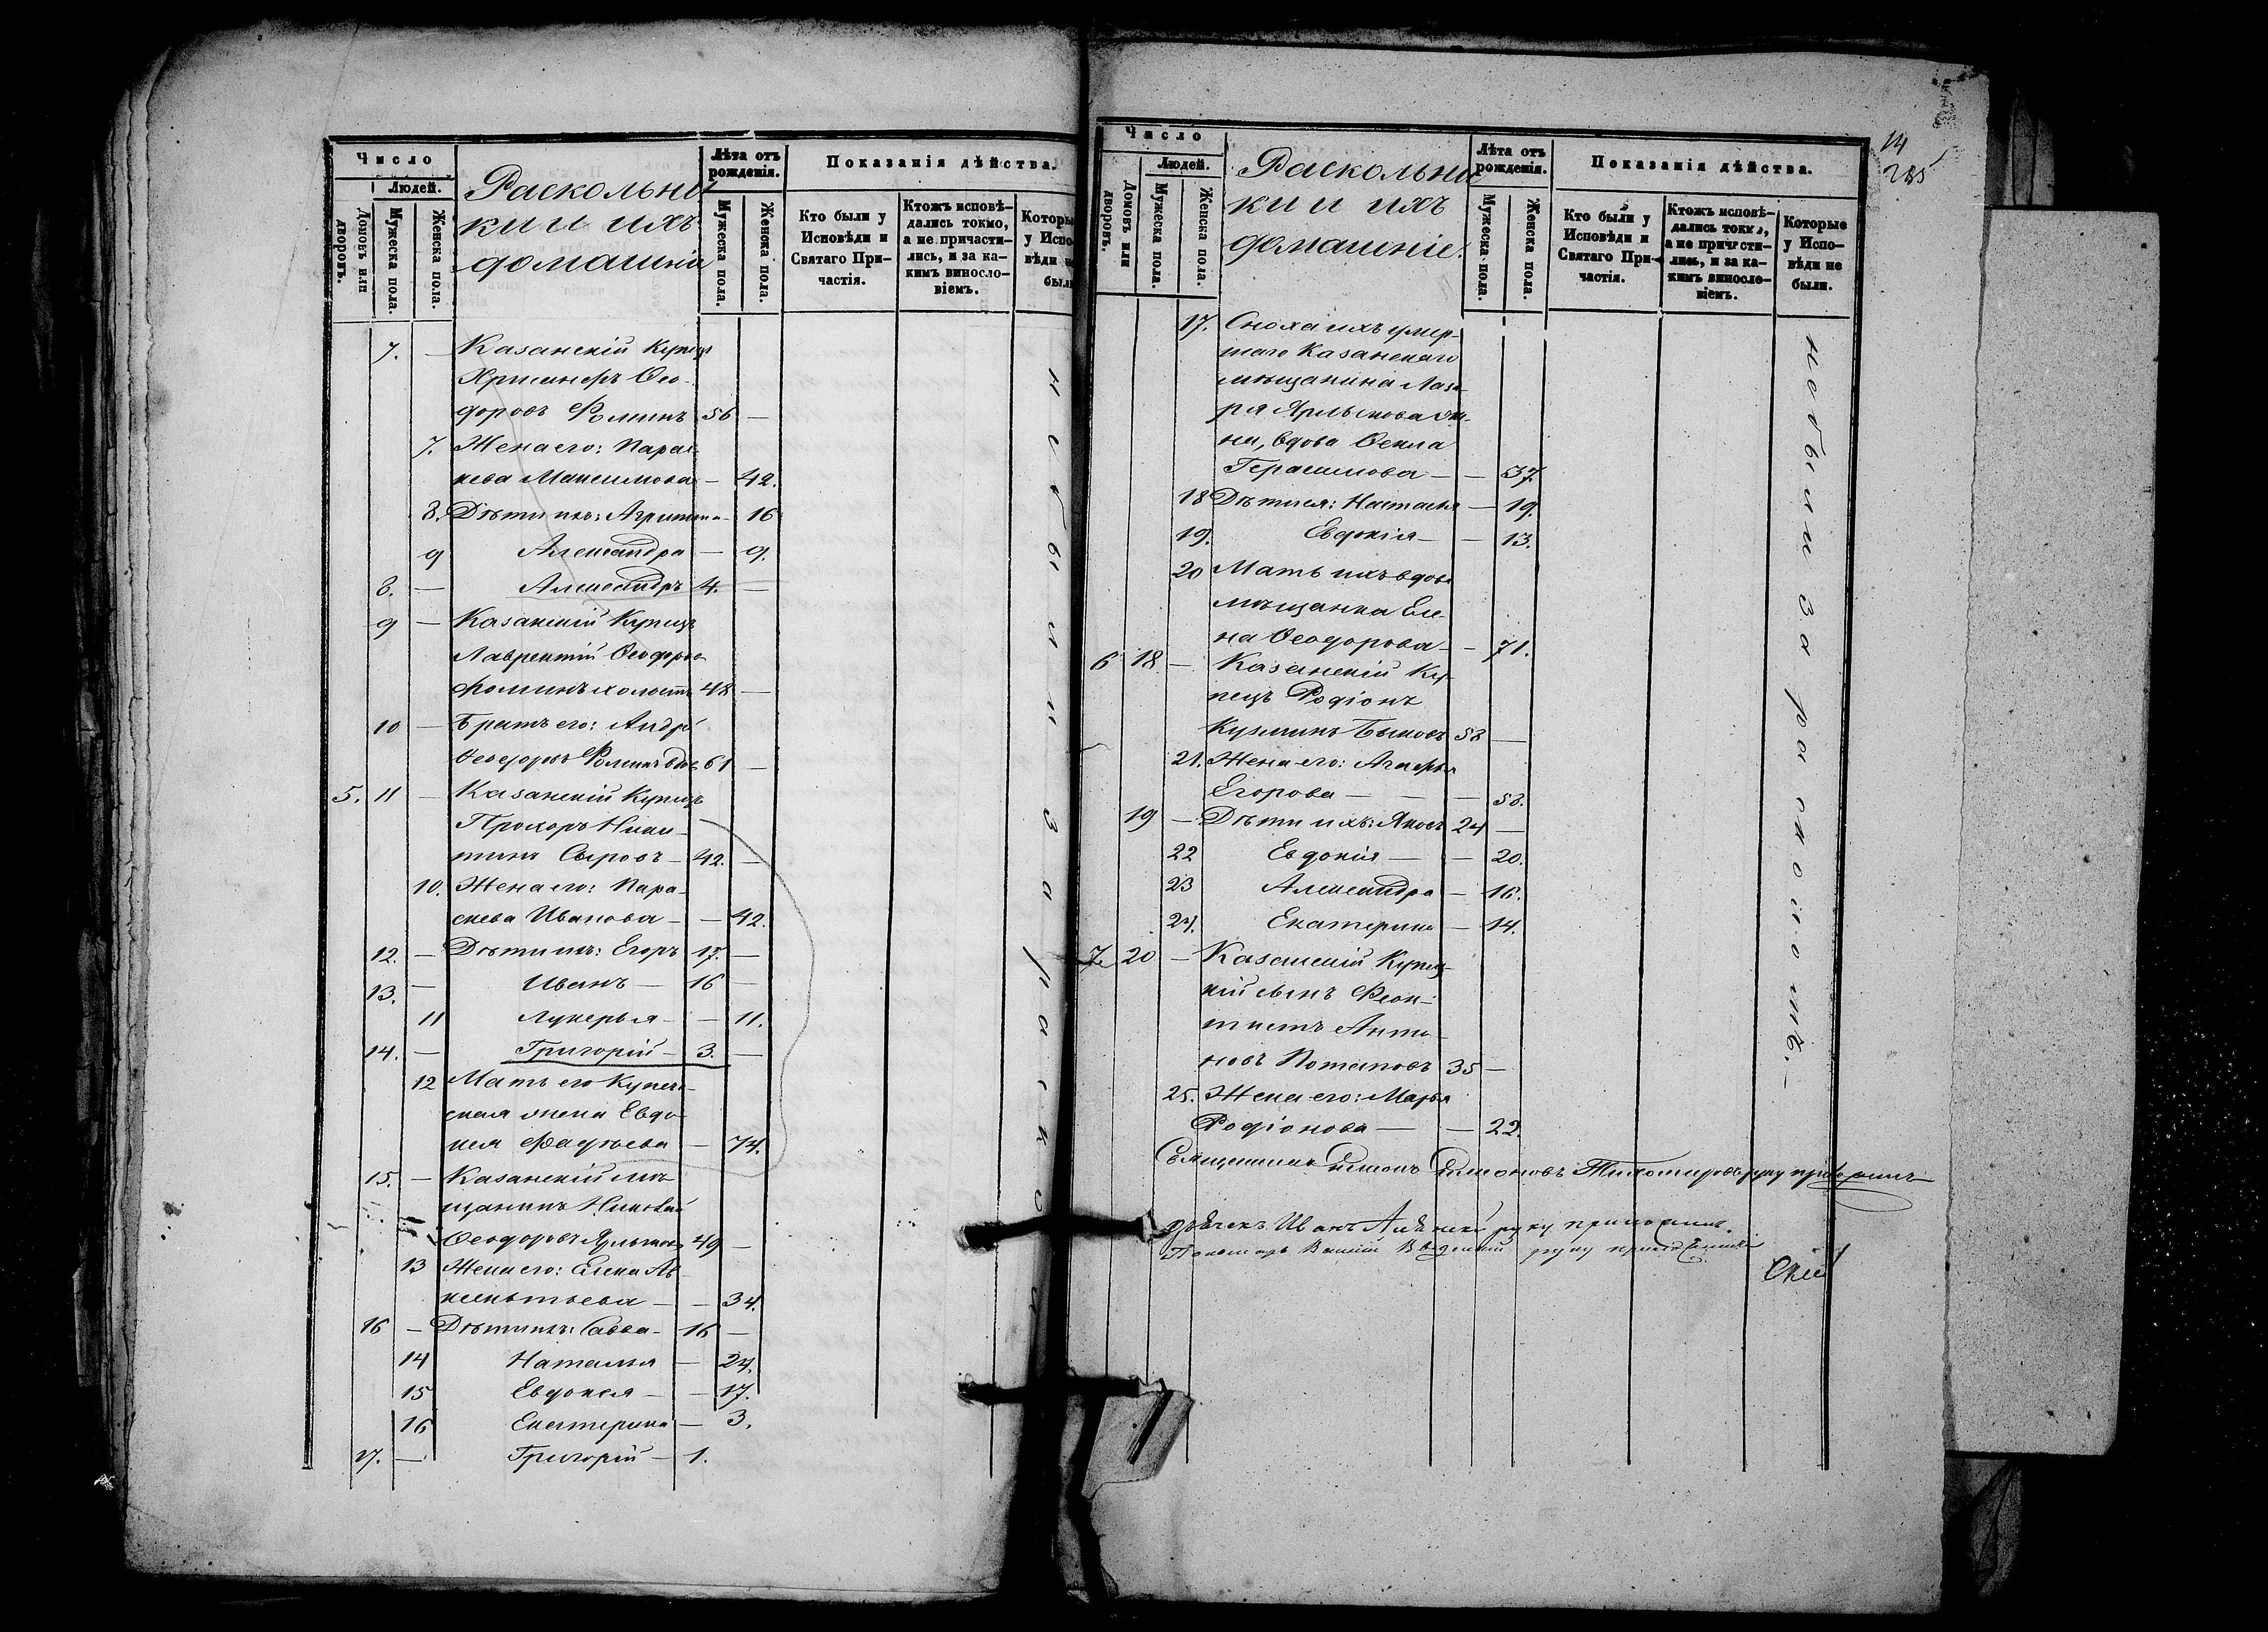 Число
Людей.
Домовъ или дворовъ.
Мужеска пола.
Женска пола.
Раскольни
ки и ихъ
домашніе
Лѣта отъ рожденія.
Мужеска пола.
Женска пола.
Показанія дѣйства.
Кто были у Исповѣди и Святаго Причастія.
Ктожъ исповѣдались токмо, а не причастились, и за какимъ винословіемъ.
Которые у Исповѣди не были
7. — Казанскій Купецъ
Ѳео-
доровъ Фоминъ 56 —
7. Жена его: Парас-
кева Максимова — 42.
8. Дѣти ихъ: Агрипина — 16
9 Александра — 9.
8. — Александръ 4. —
9 — Казанскій Купецъ
Лаврентій Ѳеодоро
Фоминъ холостъ 48 —
10 — Братъ его: Андрей
Ѳеодоровъ Фоминъ вдов 61 —
5. 11 — Казанскій Купецъ
Прохоръ Ники-
тинъ Сыровъ — 42. —
10. Жена его: Пара-
скева Иванова — — 42.
12. — Дѣти ихъ: Егоръ 17. —
13. — Иванъ — 16 —
11 Лукерья — — 11.
14. — Григорій — 3. —
12 Мать его Купече-
ская жена Евдо-
кея Фадѣева — 74.
15. — Казанскій мѣ-
щанинъ Николай
Ѳеодоровъ 49 —
13 Жена его: Елена Ав-
— — 34.
16 — Дѣти ихъ: Савва — 16 —
14 Наталья — 24.
15 Евдокея — — 17.
16 Екатерина — 3.
17. — Григорій — 1.
не были за раско
14
285
Число
Людей.
Домовъ или дворовъ.
Мужеска пола.
Женска пола.
Раскольни
ки и ихъ
домашніе.
Лѣта отъ рожденія.
Мужеска пола.
Женска пола.
Показанія дѣйства.
Кто были у Исповѣди и Святаго Причастія.
Ктожъ исповѣдались токмо, а не причастились, и за какимъ винословіемъ.
Которые у Исповѣди не были.
17. Сноха ихъ умер-
шаго Казанскаго
мѣщанина Лаза-
ря Ярлыкова же-
на, вдова Ѳекла
Герасимова — — 37.
18 Дѣти ея: Настасья — 19.
19. Евдокія — — 13.
20 Мать ихъ вдова
мѣщанка Еле-
на Ѳеодорова — — 71.
6 18 — Казанскій Ку-
пецъ Родіонъ
Кузминъ Быковъ 58 —
21. Жена его: Агафья
Егорова — — — 58.
19 — Дѣти ихъ: Яковъ 24 —
22 Евдокія — — 20.
23 Александра — 16.
24. Екатерина — 14.
7. 20 — Казанскій Купец-
кій сынъ Феок-
тистъ Анти-
новъ Потаповъ 35 —
25. Жена его: Марья
Родіонова — — 22.
не были за расколомъ. —
Священникъ Симонъ Симоновъ Тихомировъ руку приложилъ
Дьячекъ Иванъ руку приложилъ.
Пономарь Введенскій руку приложилъ